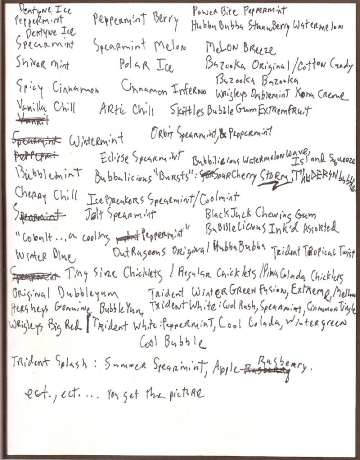 Dentyne Ice Power Bite Peppermint
Peppermint Peppermint Berry Hubba Bubba Strawberry Watermelon
Dentyne Ice
Spearmint Spearmint Melon Melon Breeze
Shiver mint Polar Ice Bazooka Original/Cotton Candy
Bazooka Bazooka
Spicy Cinnamon Cinnamon Inferno Wrigleys
Vanilla Chill Artic Chill Skittles Bubble Gum Extrem Fruit
Wintermint Orbit Spearmint, & Peppermint
Eclipse Spearmint Bubbalicious Watermelon Wave, Island Squeeze
Bubblemint Bubbalicious "Bursts": Cherry Storm,
Cherry Chill Ice Breakers Spearmint/Coolmint
Jolt Spearmint Black Jack Chewing Gum
"Cobalt...a cooling Peppermint" Bubbelicious Ink'd Assorted
Winter Blue Outrageous Original Hubba Bubba Trident Tropical Twist
Tiny Size Chicklets / Regular Chicklets/Pina Colada Chicklets
Original Dubbleyum Trident Winter Green Fusion, Extreme,
Hersheys Bubble Yum, Trident White: Cool Rush, Spearmint, Cinnamon Tingle
Wrigleys Big Red Trident White: Peppermint, Cool Colada, Wintergreen
Cool Bubble
Trident Splash: Summer Spearmint, Apple Rasberry.
ect., ect.... You get the picture